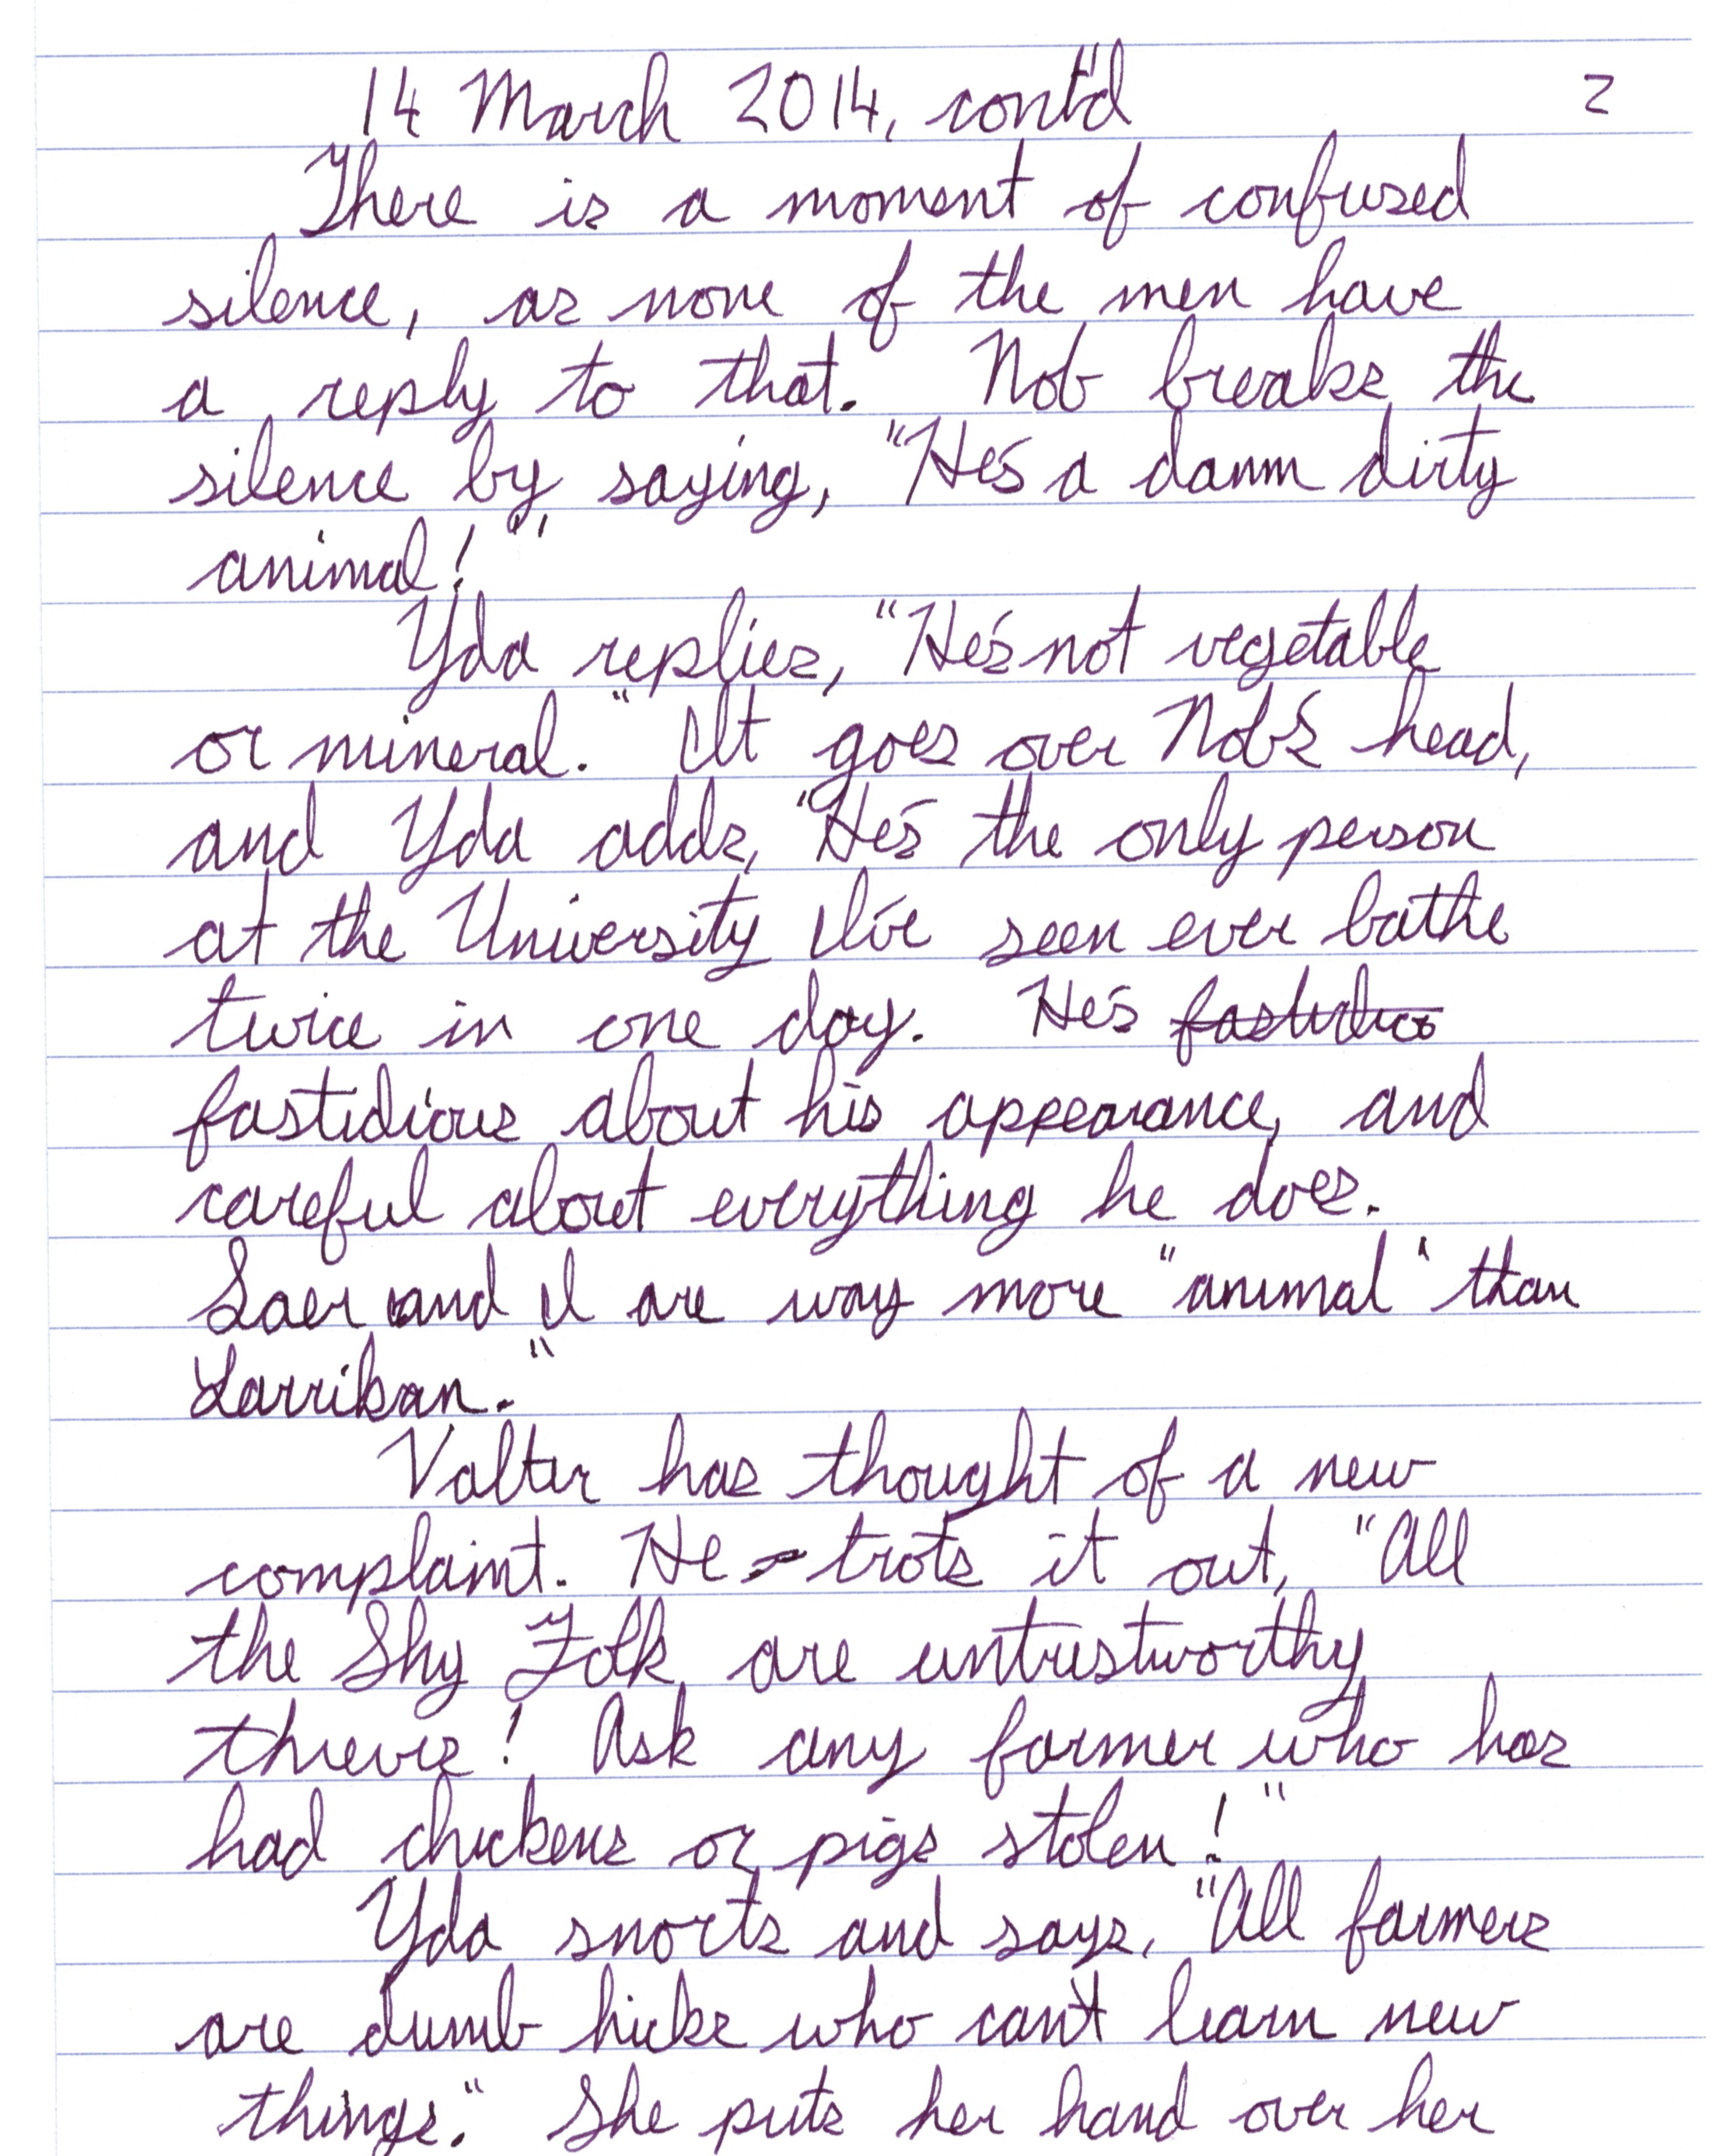 14 March 2014, cont'd 2
There is a moment of confused
silence, as none of the men have
a reply to that. Nob breaks the
silence by saying, "He's a damn dirty
animal!"
Yda replies, "He's not vegetable
or mineral." It goes over Nob's head,
and Yda adds, "He's the only person
at the University I've seen ever bathe
twice in one day. He's
fastidious about his appearance, and
careful about everything he does.
Saer and I are way more "animal" than
Larrikan."
Valter has thought of a new
complaint. He trots it out, "All
the Shy Folk are untrustworthy
thieves! Ask any farmer who has
had chickens or pigs stolen!"
Yda snorts and says, "All farmers
are dumb hicks who can't learn new
things." She puts her hand over her